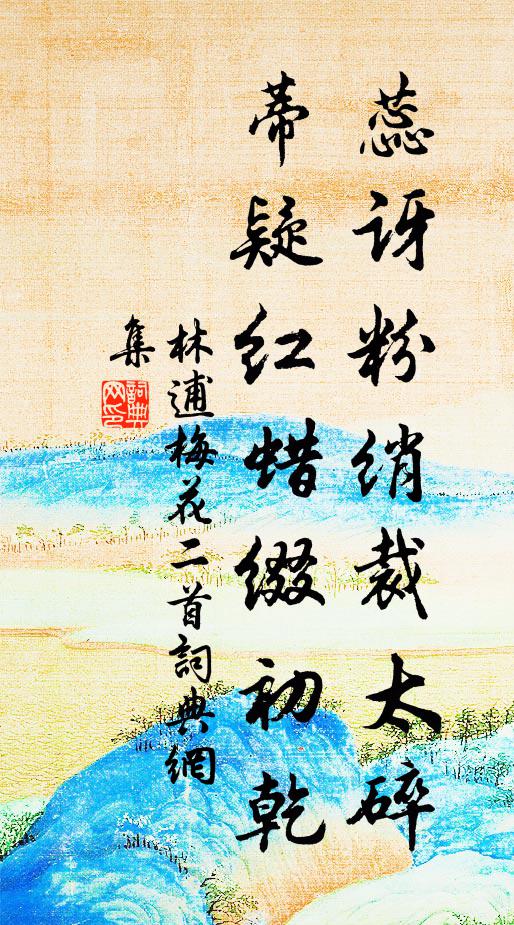 蕊訝粉綃裁太碎
蒂疑红蜡缀初乾
林逋梅花二首詞典網
集
詞典
网印